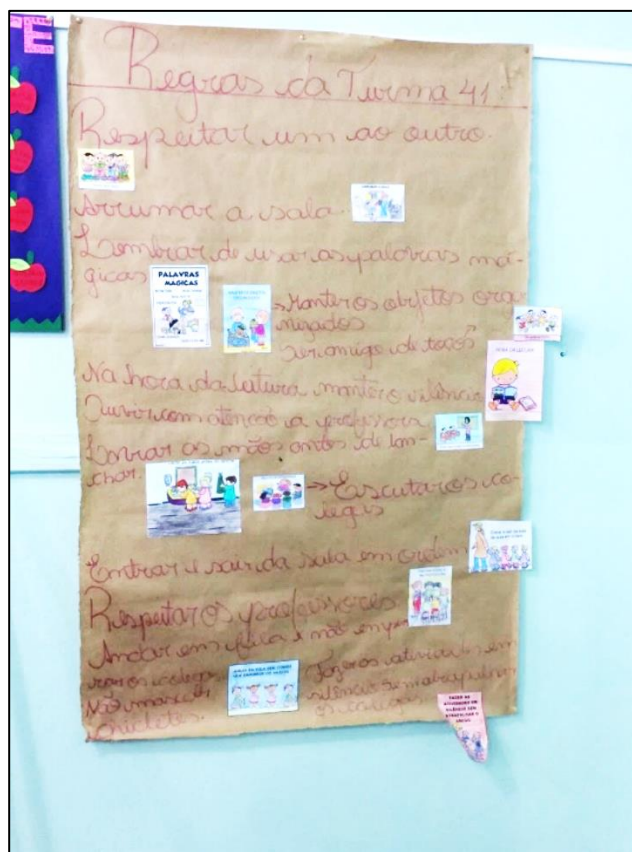 E
Regras da Turma 41
Respeitar um ao outro.
Arrumar a sala
Lembrar de usar as palavras má-
gicas
PALAVRAS
MÁGICAS
→ Manter os objetos orga
nizados
Ser amigo de todos
HORA DA LEITURA
Na hora da leitura manter o silêncio
Ouvir com atenção a professora
Lavrar as mãos antes de lan-
char.
→ Escutar os co-
legas
Entrar e sair da sala em ordem
Respeitar os professores
Andar em fila e não empu
rrar os colegas
Não mascar
chicletes.
Fazer as atividades em
silêncio sem atrapalhar
os colegas
FAZER AS
ATIVIDADES EM
SILÊNCIO SEM
ATRAPALHAR O